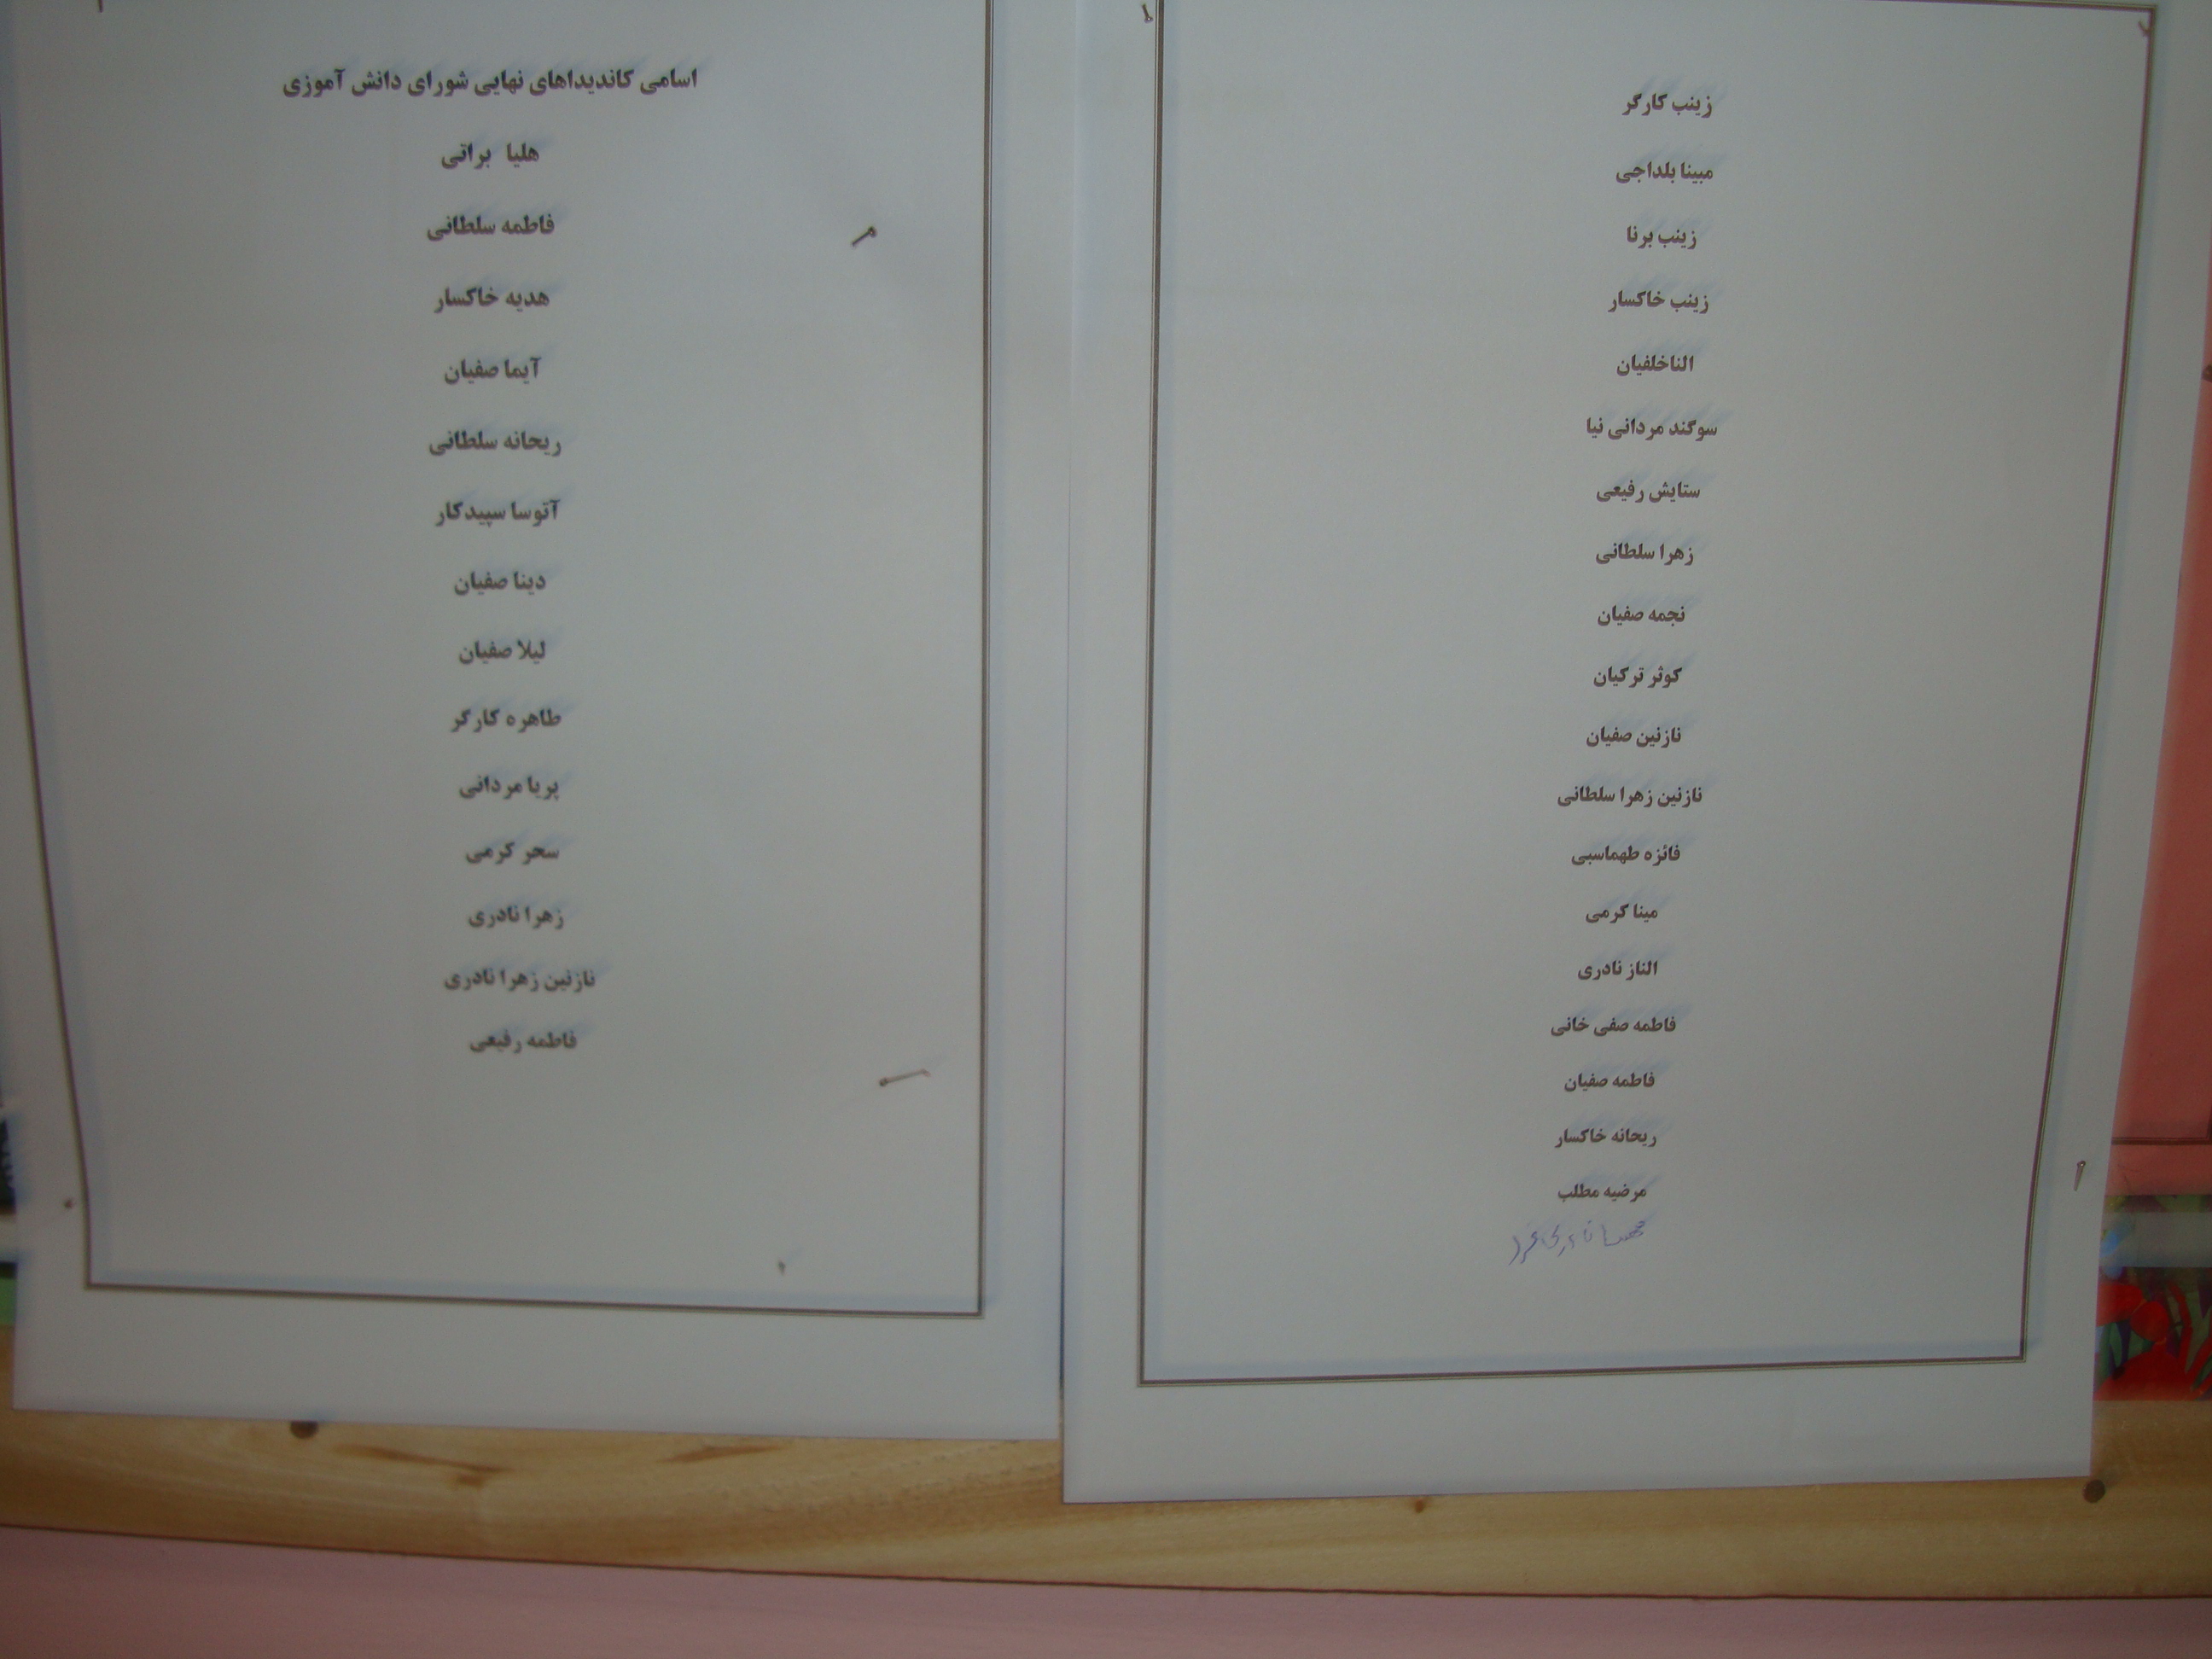 اسامی کاندیداهای نهایی شورای دانش آموزی
هلیا براتی
فاطمه سلطانی
هدیه خاکسار
آیما صفیان
ریحانه سلطانی
آتوسا سپیدکار
دینا صفیان
لیلا صفیان
طاهره کارگر
پریا مردانی
سحر کرمی
زهرا نادری
نازنین زهرا نادری
فاطمه رفیعی
زینب کارگر
مبینا بلداجی
زینب برنا
زینب خاکسار
الناخلفیان
سوگند مردانی نیا
ستایش رفیعی
زهرا سلطانی
نجمه صفیان
کوثر ترکیان
نازنین صفیان
نازنین زهرا سلطانی
فائزه طهماسبی
مینا کرمی
الناز نادری
فاطمه صفی خانی
فاطمه صفیان
ریحانه خاکسار
مرضیه مطلب